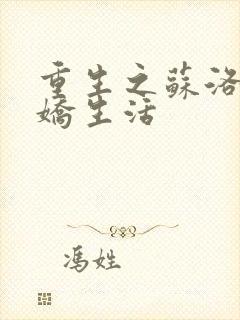 重生之蘇洛
嬌生活
馮姓